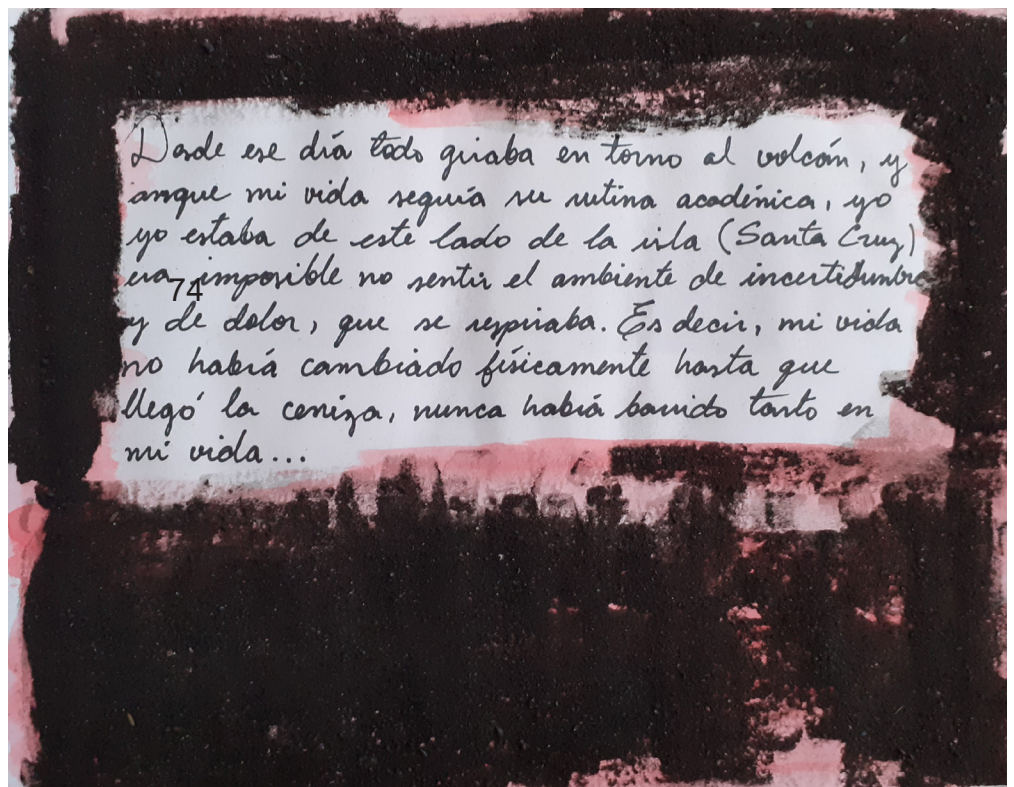 Desde ese día todo giraba en torno al volcán, y
aunque mi vida seguía su rutina académica, yo
yo estaba de este lado de la isla (Santa Cruz)
era imposible no sentir el ambiente de incertidumbre
74
y de dolor, que se respiraba. Es decir, mi vida
no había cambiado físicamente hasta que
llegó la ceniza, nunca había barrido tanto en
mi vida...